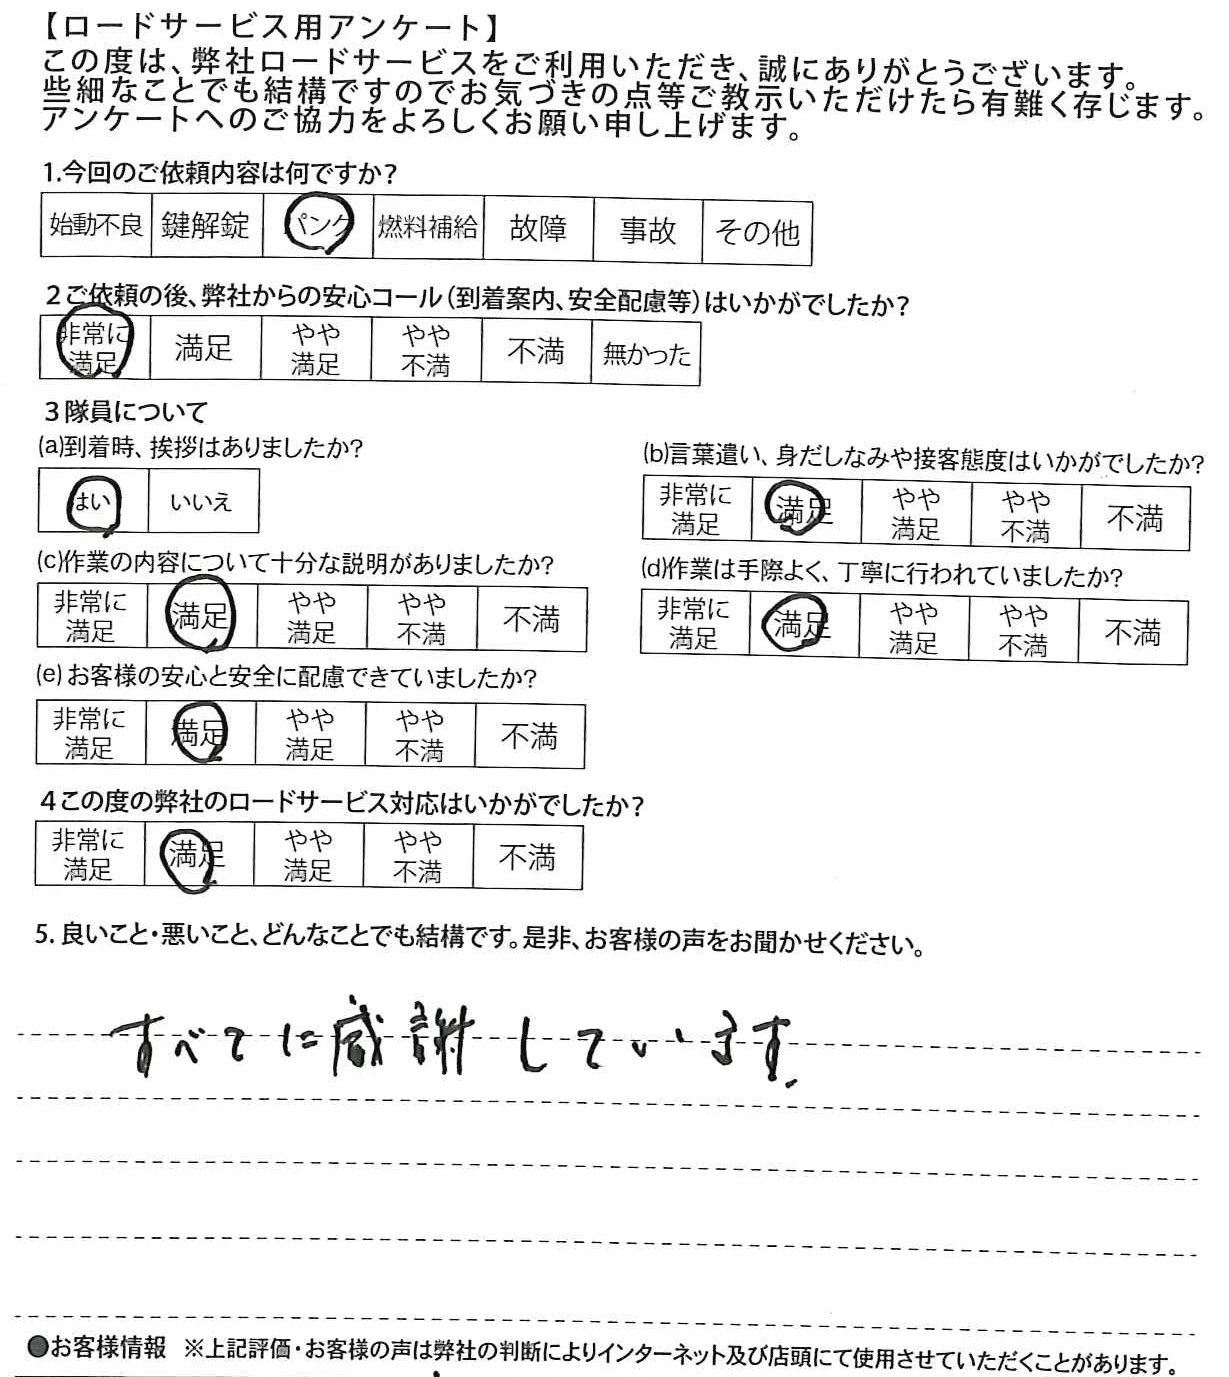 【ロードサービス用アンケート】
この度は、弊社ロードサービスをご利用いただき、誠にありがとうございます。
些細なことでも結構ですのでお気づきの点等ご教示いただけたら有難く存じます。
アンケートへのご協力をよろしくお願い申し上げます。
1.今回のご依頼内容は何ですか?
始動不良 鍵解錠 パンク 燃料補給 故障 事故 その他
2ご依頼の後、弊社からの安心コール(到着案内、安全配慮等)はいかがでしたか?
非常に満足 満足 やや満足 やや不満 不満 無かった
3隊員について
(a)到着時、挨拶はありましたか?
はい いいえ
(b)言葉遣い、身だしなみや接客態度はいかがでしたか?
非常に満足 満足 やや満足 やや不満 不満
(c)作業の内容について十分な説明がありましたか?
非常に満足 満足 やや満足 やや不満 不満
(d)作業は手際よく、丁寧に行われていましたか?
非常に満足 満足 やや満足 やや不満 不満
(e)お客様の安心と安全に配慮できていましたか?
非常に満足 満足 やや満足 やや不満 不満
4この度の弊社のロードサービス対応はいかがでしたか?
非常に満足 満足 やや満足 やや不満 不満
5.良いこと・悪いこと、どんなことでも結構です。是非、お客様の声をお聞かせください。
すべてに感謝しています。
●お客様情報 ※上記評価・お客様の声は弊社の判断によりインターネット及び店頭にて使用させていただくことがあります。